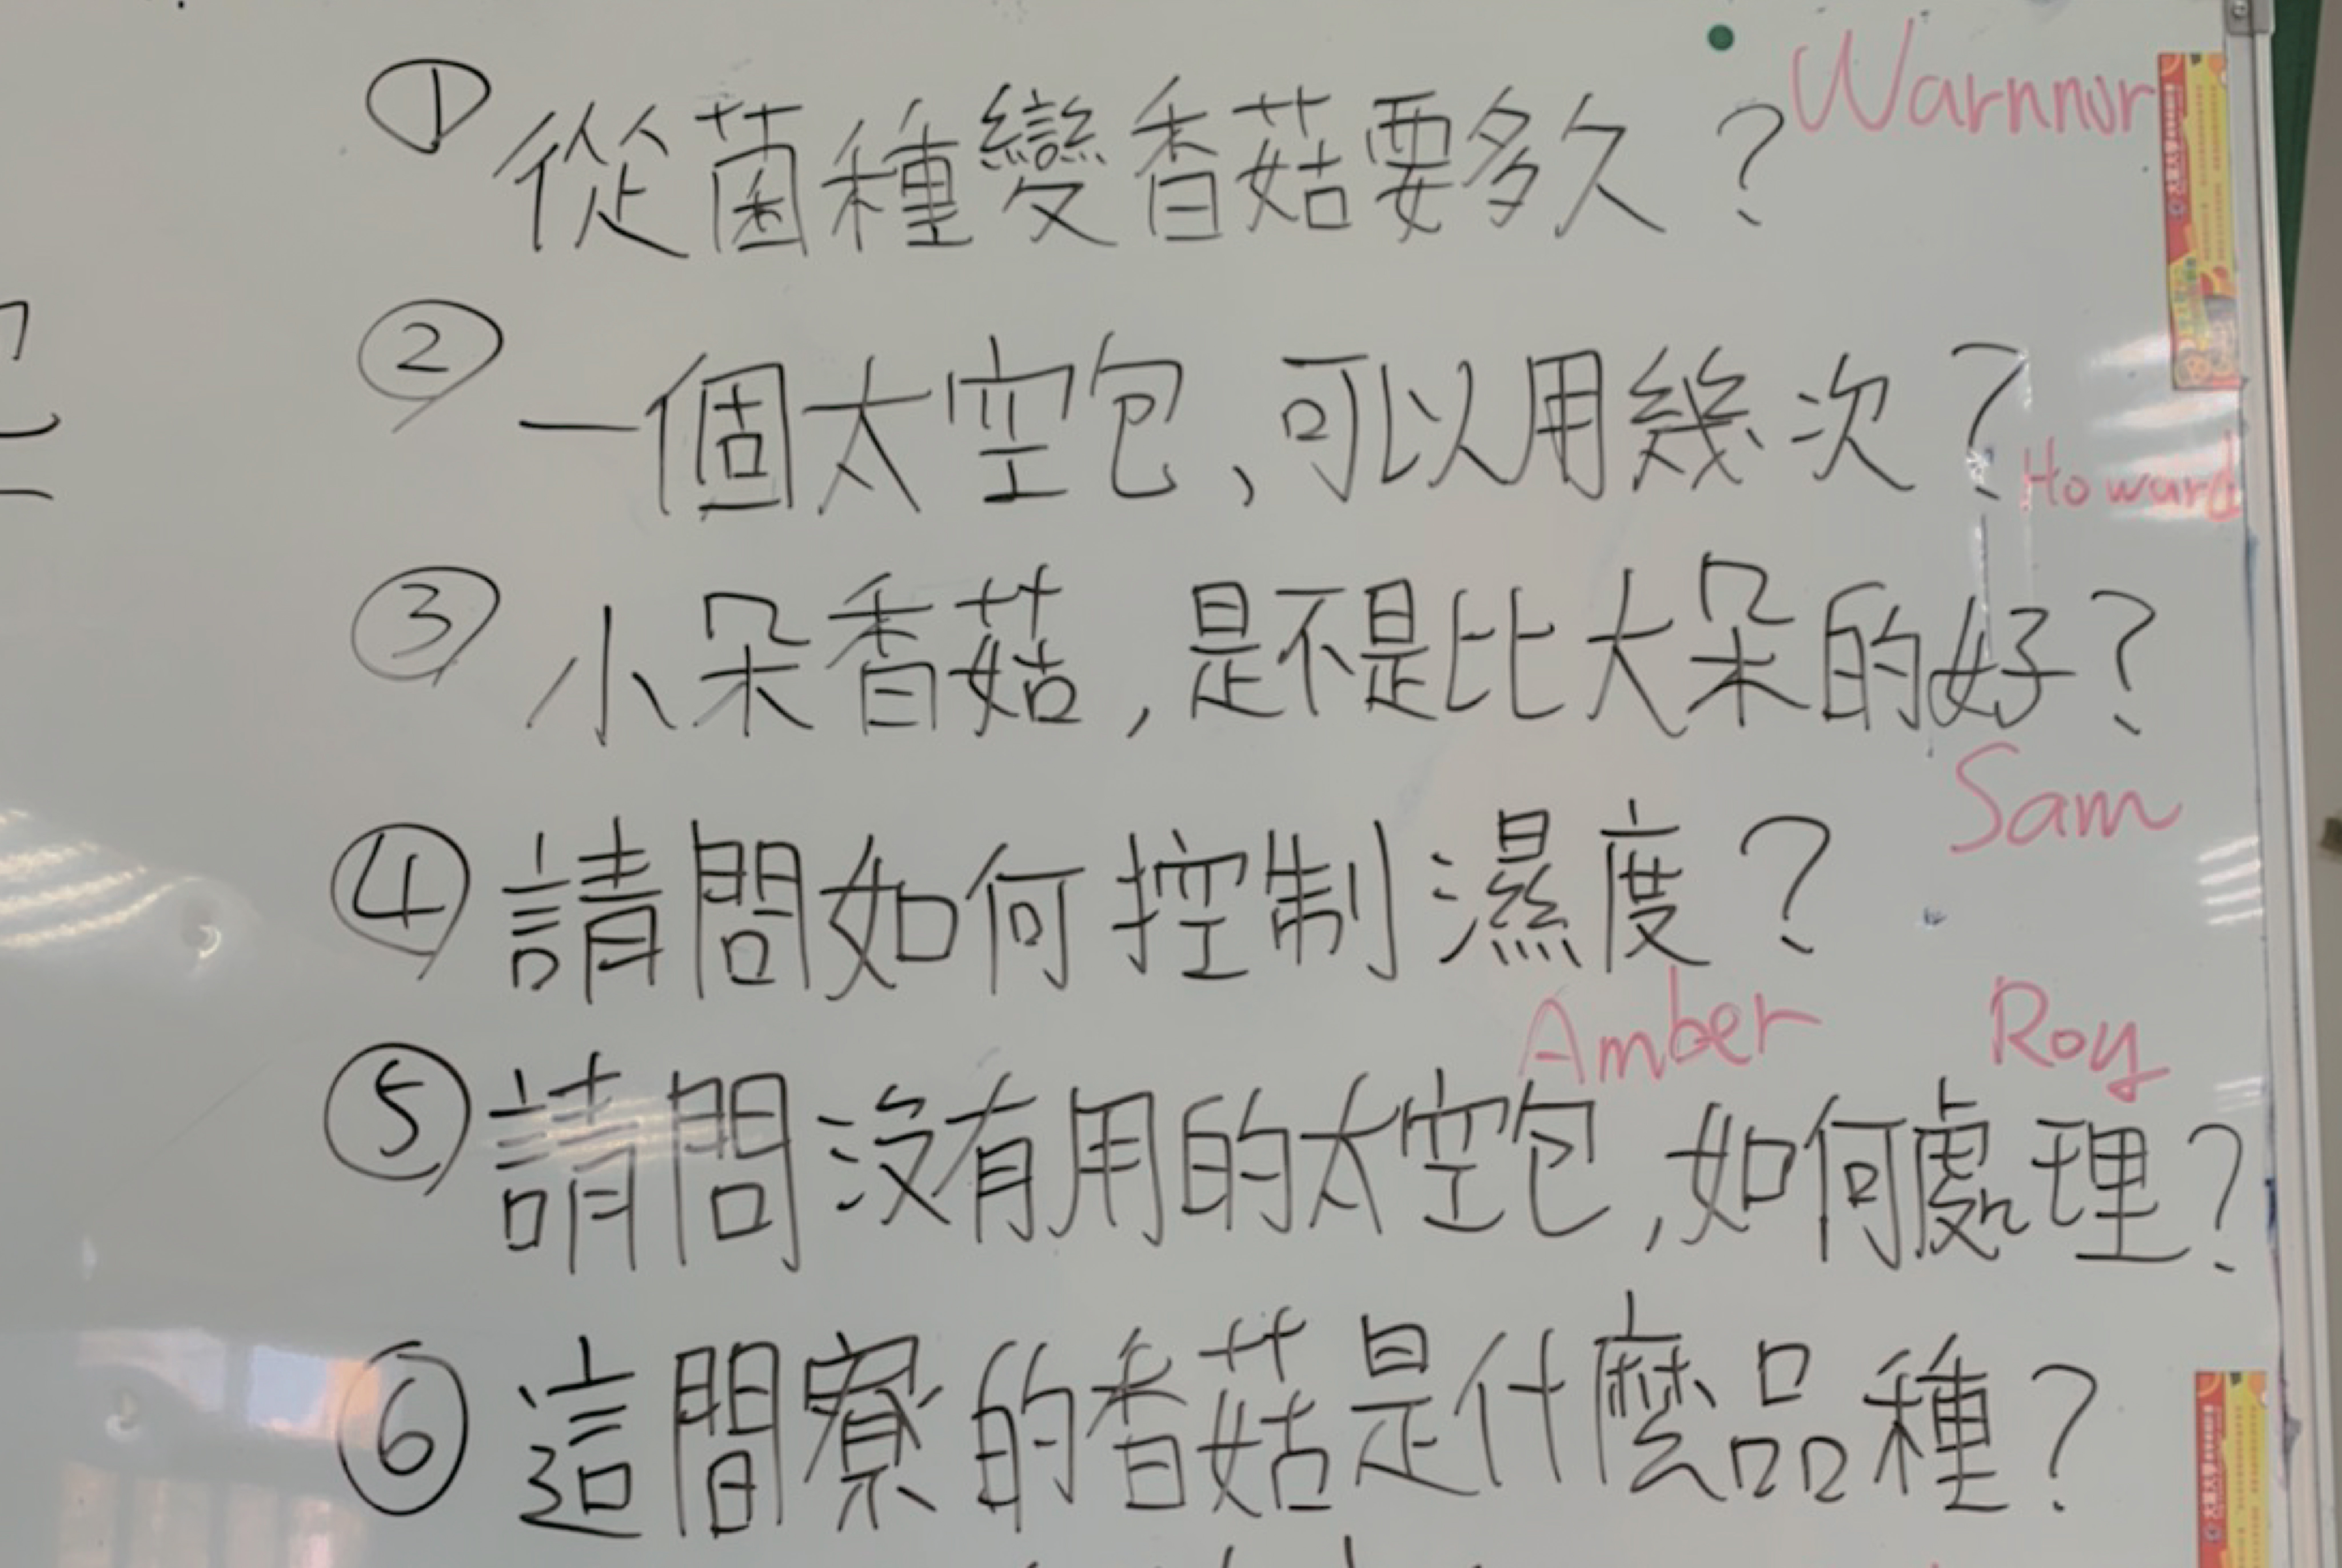 ① 從菌種變香菇要多久？ Warnnor
② 一個太空包、可以用幾次？ Howard
③ 小朵香菇，是不是比大朵的好？
Sam
④ 請問如何控制濕度？
Amber Roy
⑤ 請問沒有用的太空包，如何處理？
⑥ 這間寮的香菇是什麼品種？